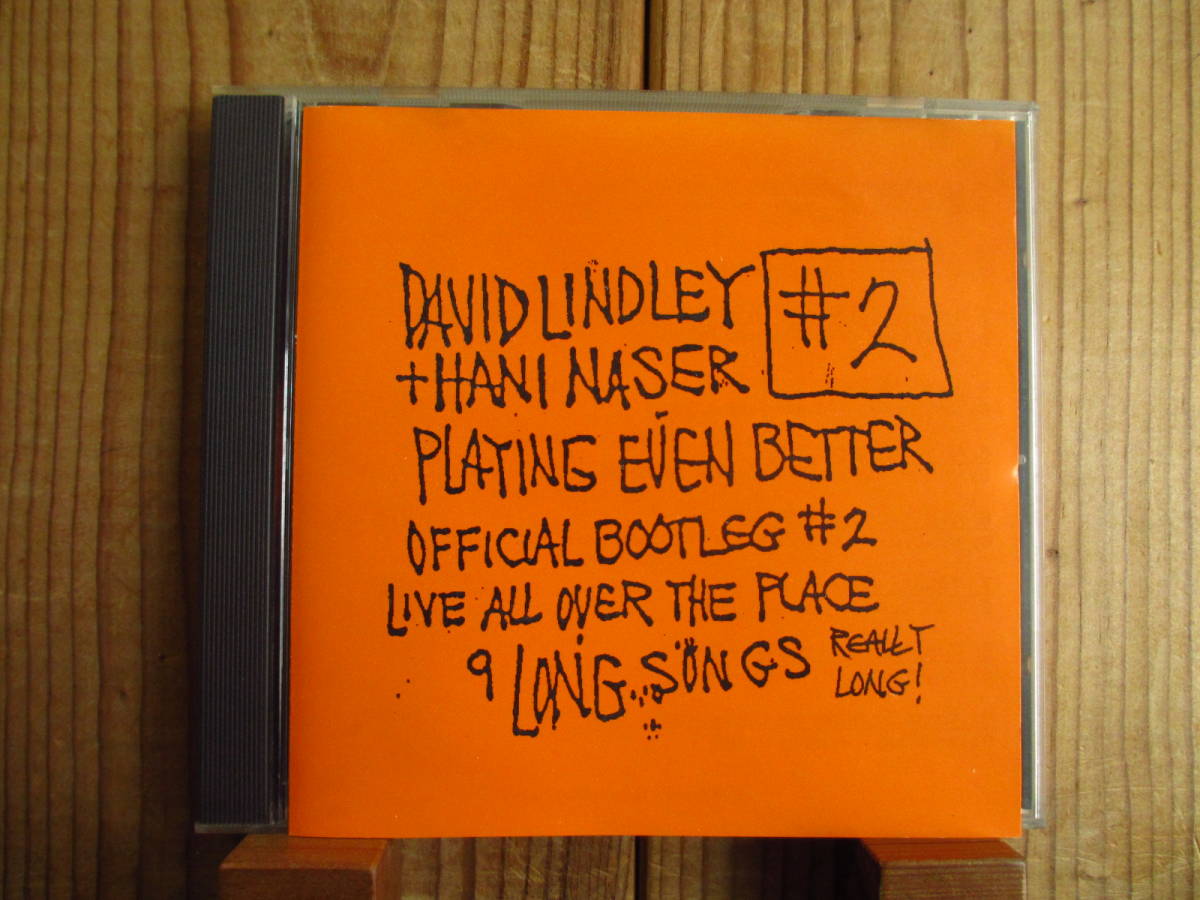 DAVID LINDLEY
+ HANI NASER
#2
PLAYING EVEN BETTER
OFFICIAL BOOTLEG #2
LIVE ALL OVER THE PLACE
9 LONG SONGS
REALLY
LONG!